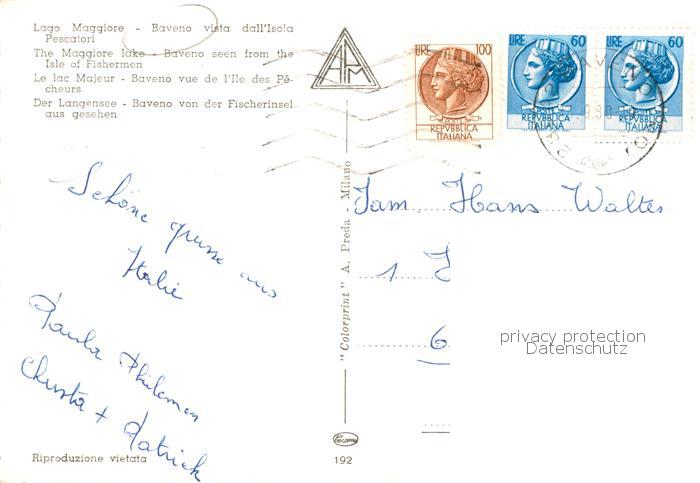 Lago Maggiore - Baveno vista dall'Isola
Pescatori
The Maggiore lake - Baveno seen from the
Isle of Fishermen
Le lac Majeur - Baveno vue de l'Ile des Pê-
cheurs
Der Langensee - Baveno von der Fischerinsel
aus gesehen
APM
LIRE 100
POSTE
REPVBBLICA
ITALIANA
LIRE 60
POSTE
REPVBBLICA
ITALIANA
LIRE 60
POSTE
REPVBBLICA
ITALIANA
Schöne grüsse aus
Italie
Paula Philemon
Christa + Patrick
"Colorprint" A. Preda - Milano
Fam. Hans Walter
1
6
privacy protection
Datenschutz
Riproduzione vietata
192